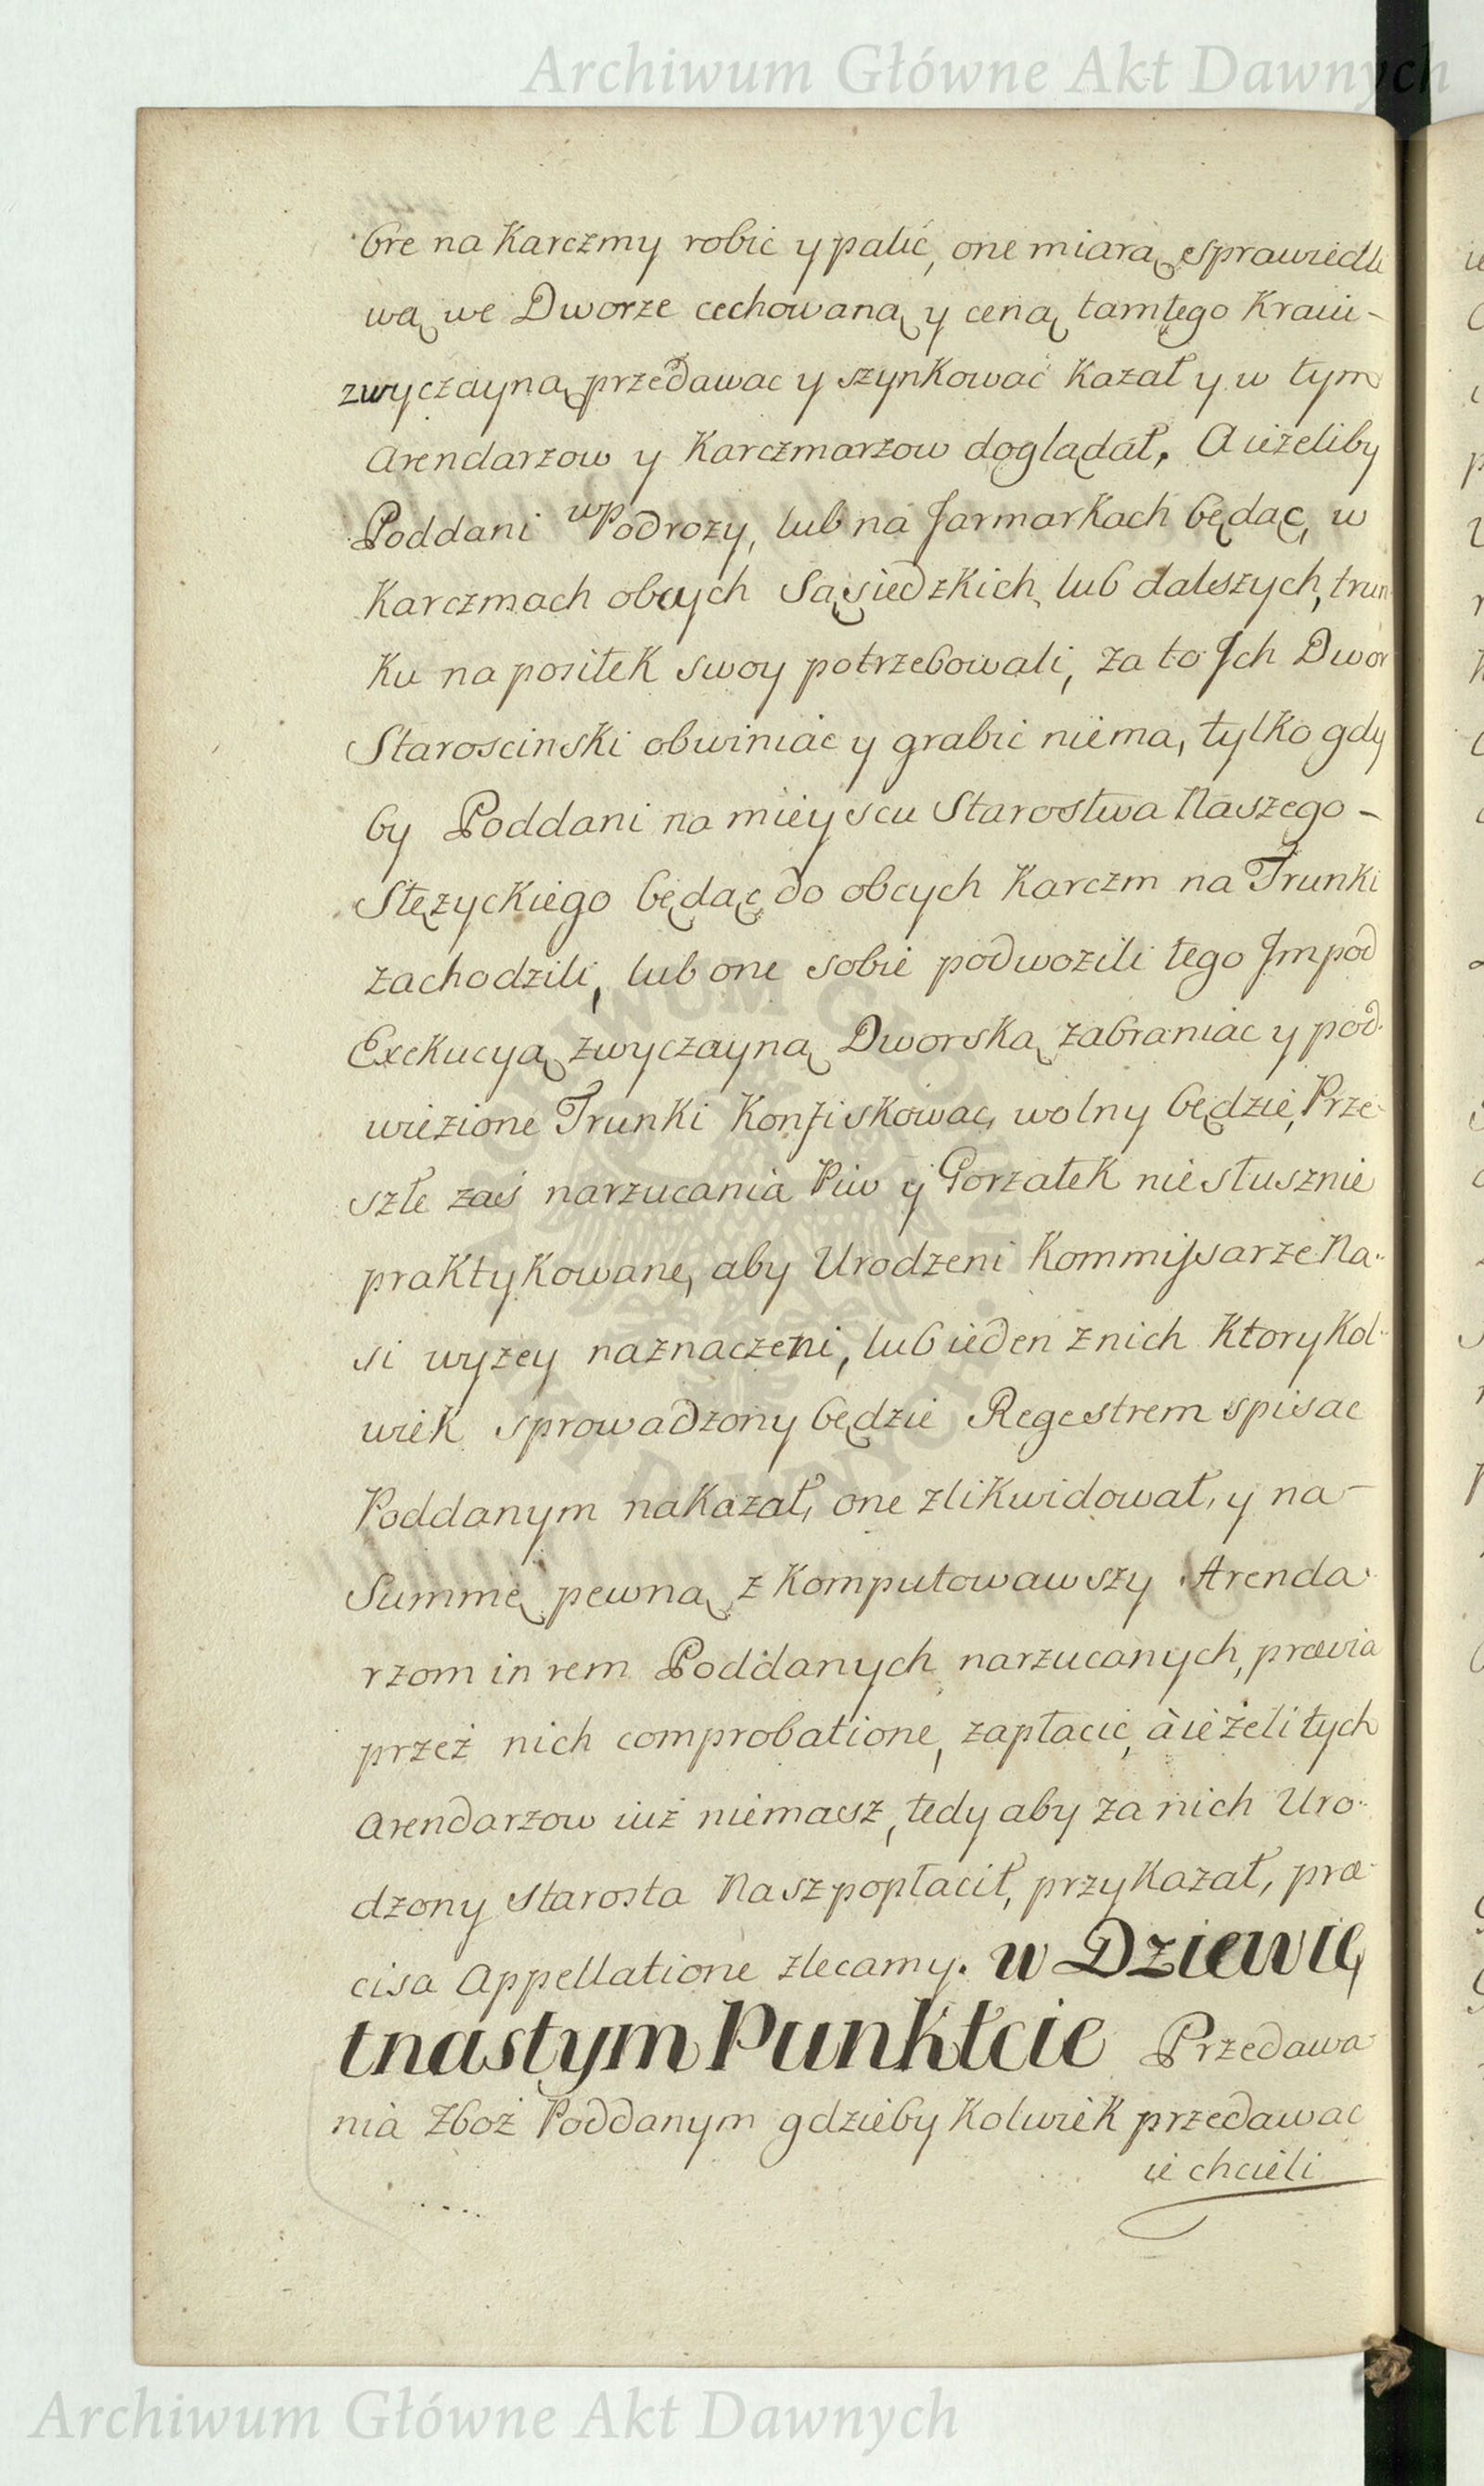 Archiwum Główne Akt Dawnych
bre na Karczmy robic y palić, one miarą sprawiedli
wą we Dworze cechowaną y ceną tamtego Kraiu-
zwyczayną przedawac y szynkować kazał y w tym
Arendarzow y Karczmarzow doglądał. A ieżeliby
Poddani w Podrozy, lub na Jarmarkach będąc, w
Karczmach obcych Sąsiedzkich, lub dalszych, trun
ku na posiłek swoy potrzebowali, za to Jch Dwor
Staroscinski obwiniac y grabic niema, tylko gdy
by Poddani na mieyscu Starostwa Naszego -
Stęzyckiego będąc do obcych Karczm na Trunki
zachodzili, lub one sobie podwozili tego Jm pod
Exekucyą zwyczayną Dworską zabraniac y pod-
wiezione Trunki Konfiskowac, wolny będzie, Prze-
szłe zaś narzucania Piw y Gorzałek niesłusznie
praktykowane, aby Urodzeni Kommissarze Na-
si wyzey naznaczeni, lub ieden z nich ktorykol-
wiek sprowadzony będzie Regestrem spisac
Poddanym nakazał, one zlikwidował, y na-
Summę pewną zkomputowawszy Arenda-
rzom in rem Poddanych narzucanych, prævia
przez nich comprobatione, zapłacic, à ieżeli tych
Arendarzow iuż niemasz, tedy aby za nich Uro-
dzony Starosta Nasz popłacił, przykazał, præ-
cisa Appellatione zlecamy. w Dziewię
tnastym Punktcie Przedawa-
nia Zboż Poddanym gdzieby kolwiek przedawac
ie chcieli
ARCHIWUM GŁÓWNE AKT DAWNYCH
Archiwum Główne Akt Dawnych